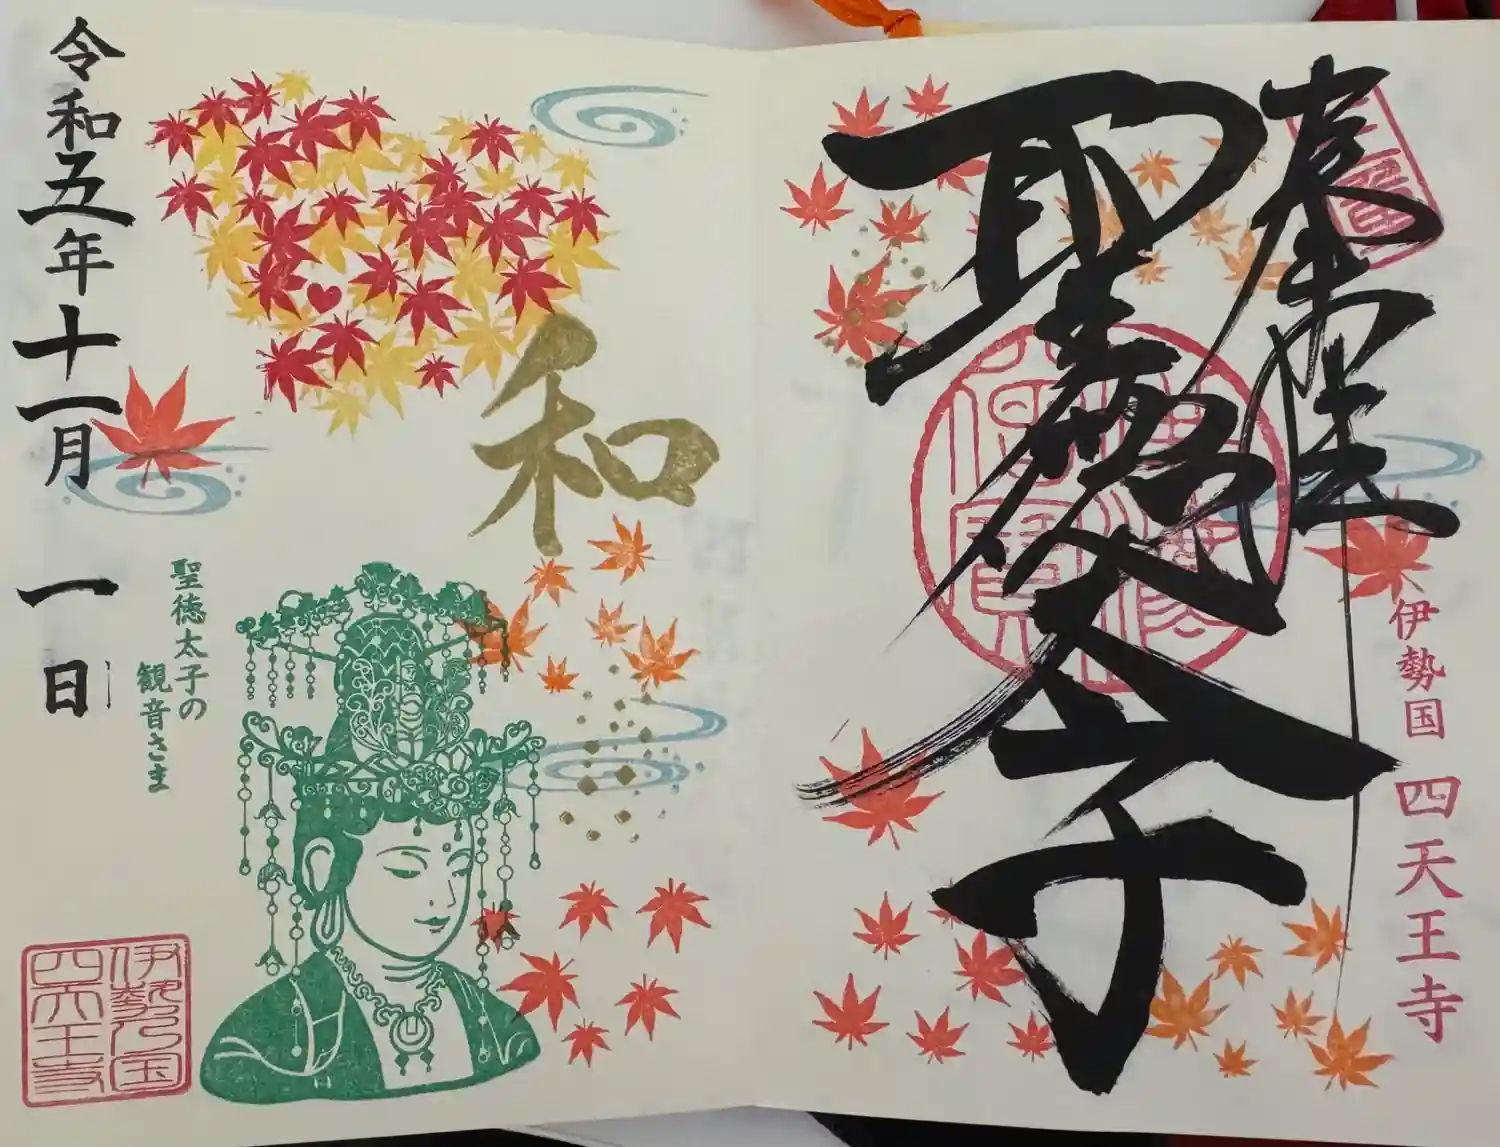 聖徳太子
伊勢国 四天王寺
和
聖徳太子の
観音さま
令和五年十一月一日
伊勢乃国
四天王寺